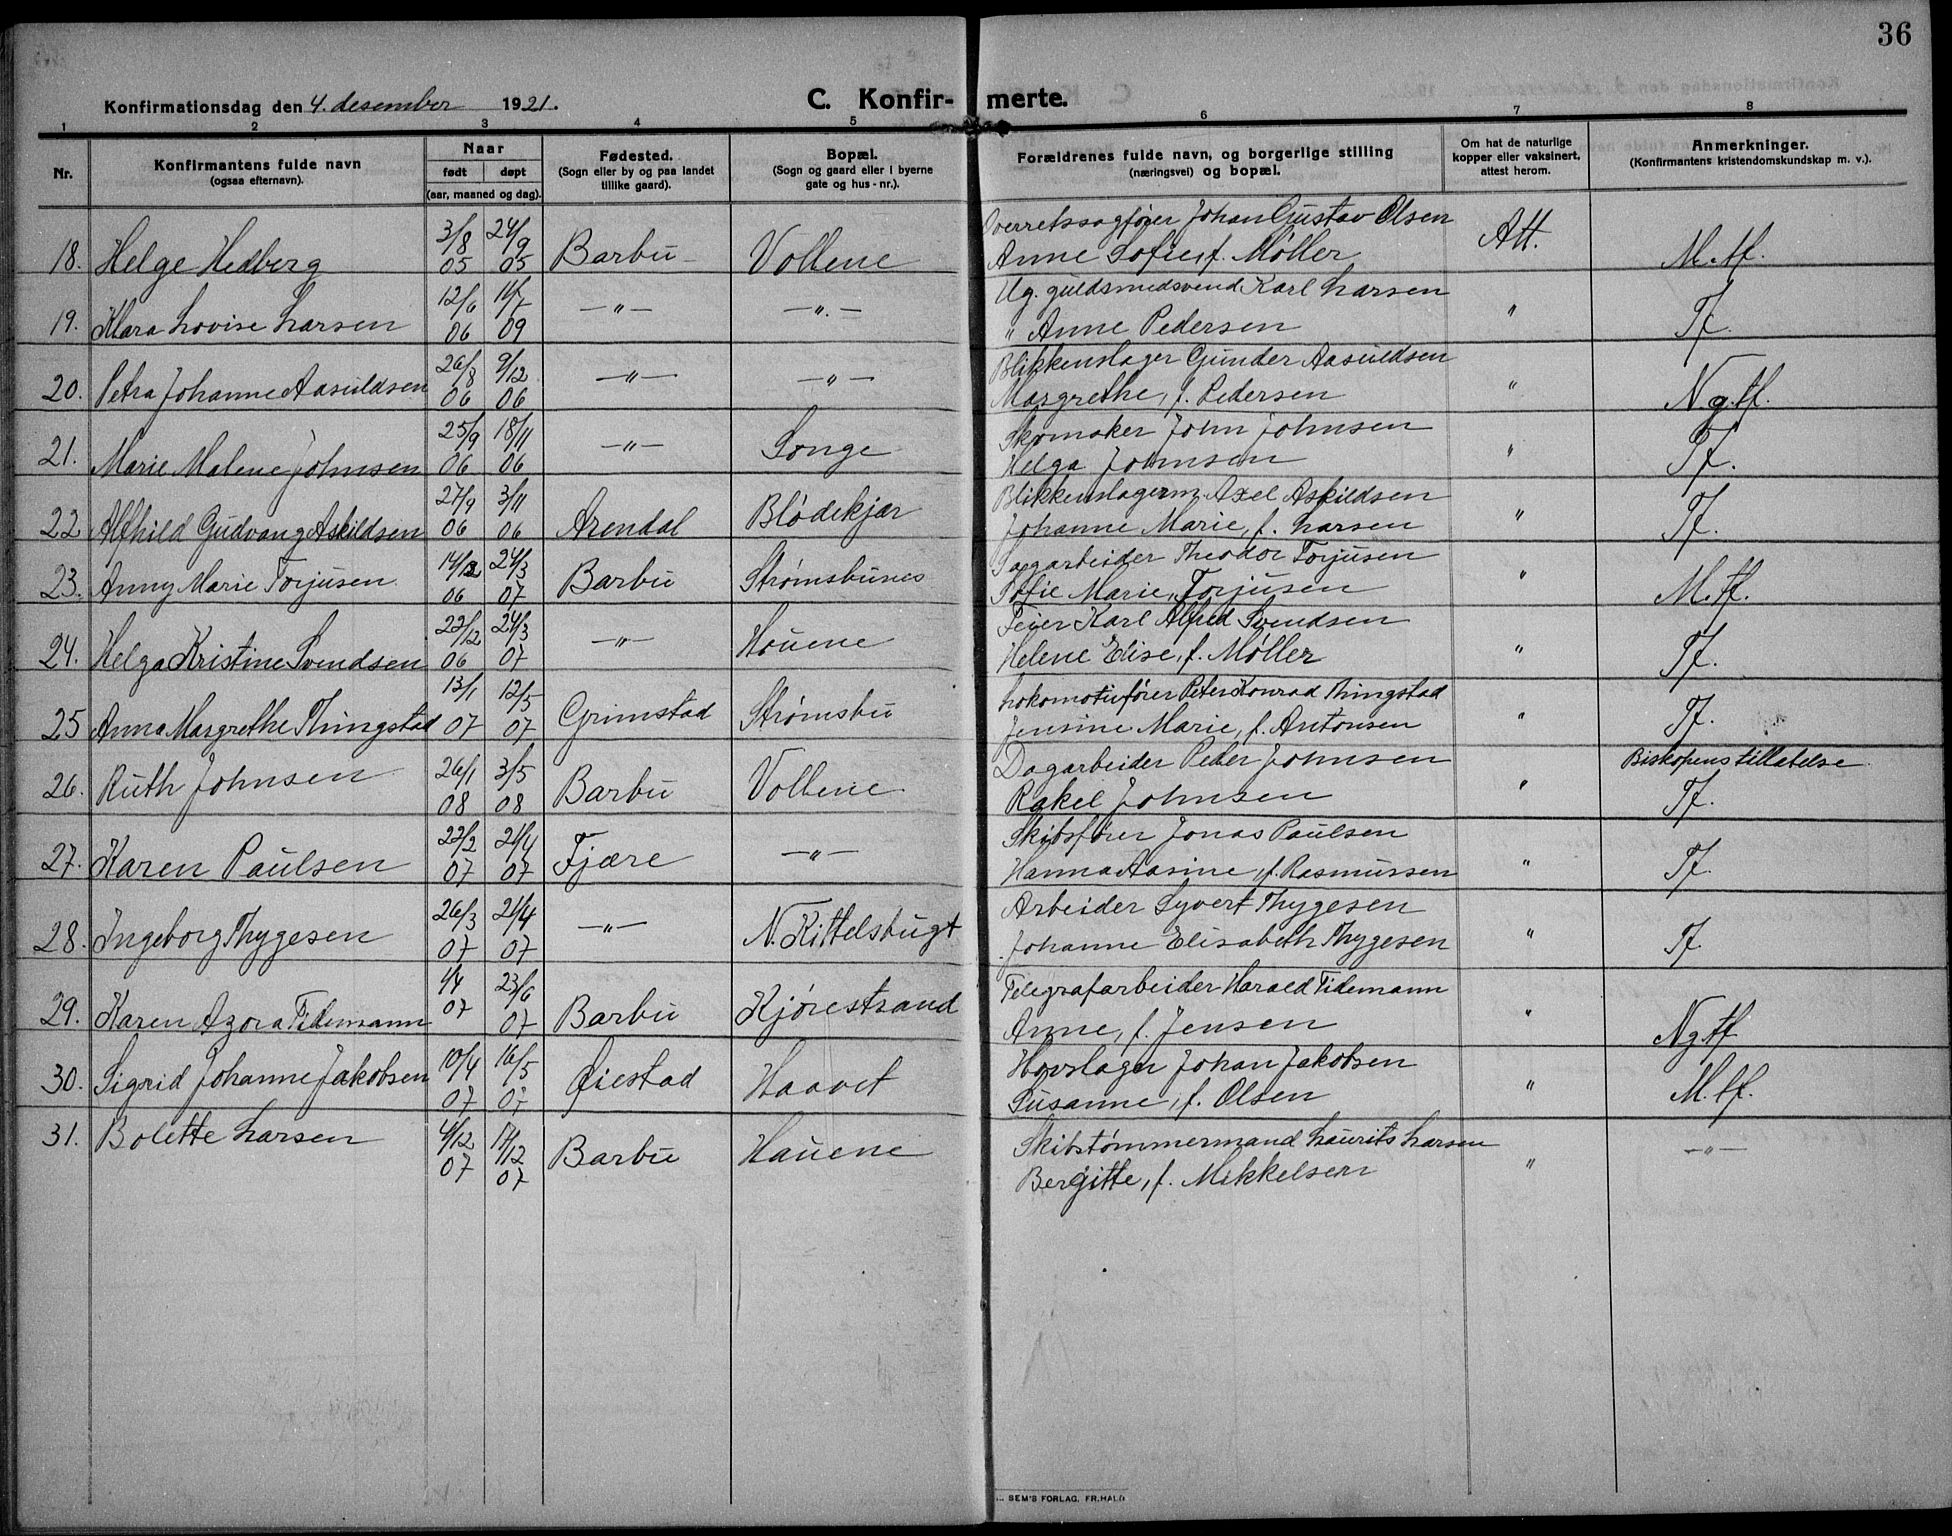 36
Konfirmationsdag den 4. desember 1921.
C. Konfir- merte.
1 2 3 4 5 6 7 8
Nr. Konfirmantens fulde navn (ogsaa efternavn). Naar født døpt (aar, maaned og dag). Fødested. (Sogn eller by og paa landet tillike gaard). Bopæl. (Sogn og gaard eller i byerne gate og hus-nr.). Forældrenes fulde navn, og borgerlige stilling (næringsvei) og bopæl. Om hat de naturlige kopper eller vaksinert, attest herom. Anmerkninger. (Konfirmantens kristendomskundskap m. v.).
18. Helge Hedberg 3/8 05 24/9 05 Barbu Vollene Overretssagfører Johan Gustav Olsen Att. M.tf.
Anne Sofie, f. Møller
19. Klara Lovise Larsen 12/6 06 11/7 09 —"— —"— Ug. guldsmedsvend Karl Larsen " Tf.
" Anne Pedersen
20. Petra Johanne Aasuldsen 26/8 06 9/12 06 —"— —"— Blikkenslager Gunder Aasuldsen " N.g.tf.
Margrethe, f. Pedersen
21. Marie Malene Johnsen 25/9 06 18/11 06 —"— Songe Skomaker John Johnsen " Tf.
Helga Johnsen
22 Alfhild Gudvang Askildsen 27/9 06 3/11 06 Arendal Blødekjær Blikkenslagerm. Axel Askildsen " Tf.
Johanne Marie, f. Larsen
23. Anny Marie Torjusen 14/12 06 24/3 07 Barbu Strømsbunes Dagarbeider Theodor Torjusen " M.tf.
Sofie Marie, Torjusen
24. Helga Kristine Svendsen 22/12 06 24/3 07 —"— Houene Feier Karl Alfred Svendsen " Tf.
Helene Elise, f. Møller
25 Anna Margrethe Thingstad 13/1 07 12/5 07 Grimstad Strømsbu Lokomotivfører Peter Konrad Thingstad " Tf.
Jensine Marie, f. Antonsen
26. Ruth Johnsen 26/1 08 3/5 08 Barbu Vollene Dagarbeider Peder Johnsen " Biskopens tillatelse
Rakel Johnsen Tf.
27. Karen Paulsen 22/2 07 21/4 07 Fjære —"— Skibsfører Jonas Paulsen " Tf.
Hanna Aasine, f. Rasmussen
28. Ingeborg Thygesen 26/3 07 21/4 07 —"— N. Kittelsbugt Arbeider Syvert Thygesen " Tf.
Johanne Elisabeth Thygesen
29. Karen Azora Tidemann 1/4 07 23/6 07 Barbu Kjørestrand Telegrafarbeider Harald Tidemann " Ng.tf.
Anne, f. Jensen
30. Sigrid Johanne Jakobsen 10/4 07 16/5 07 Øiestad Haavet Hovslager Johan Jakobsen " M.tf.
Susanne, f. Olsen
31. Bolette Larsen 4/12 07 17/12 07 Barbu Hauene Skibstømmermand Laurits Larsen " —"—
Bergitte, f. Mikkelsen
SEM'S FORLAG, FR.HALD